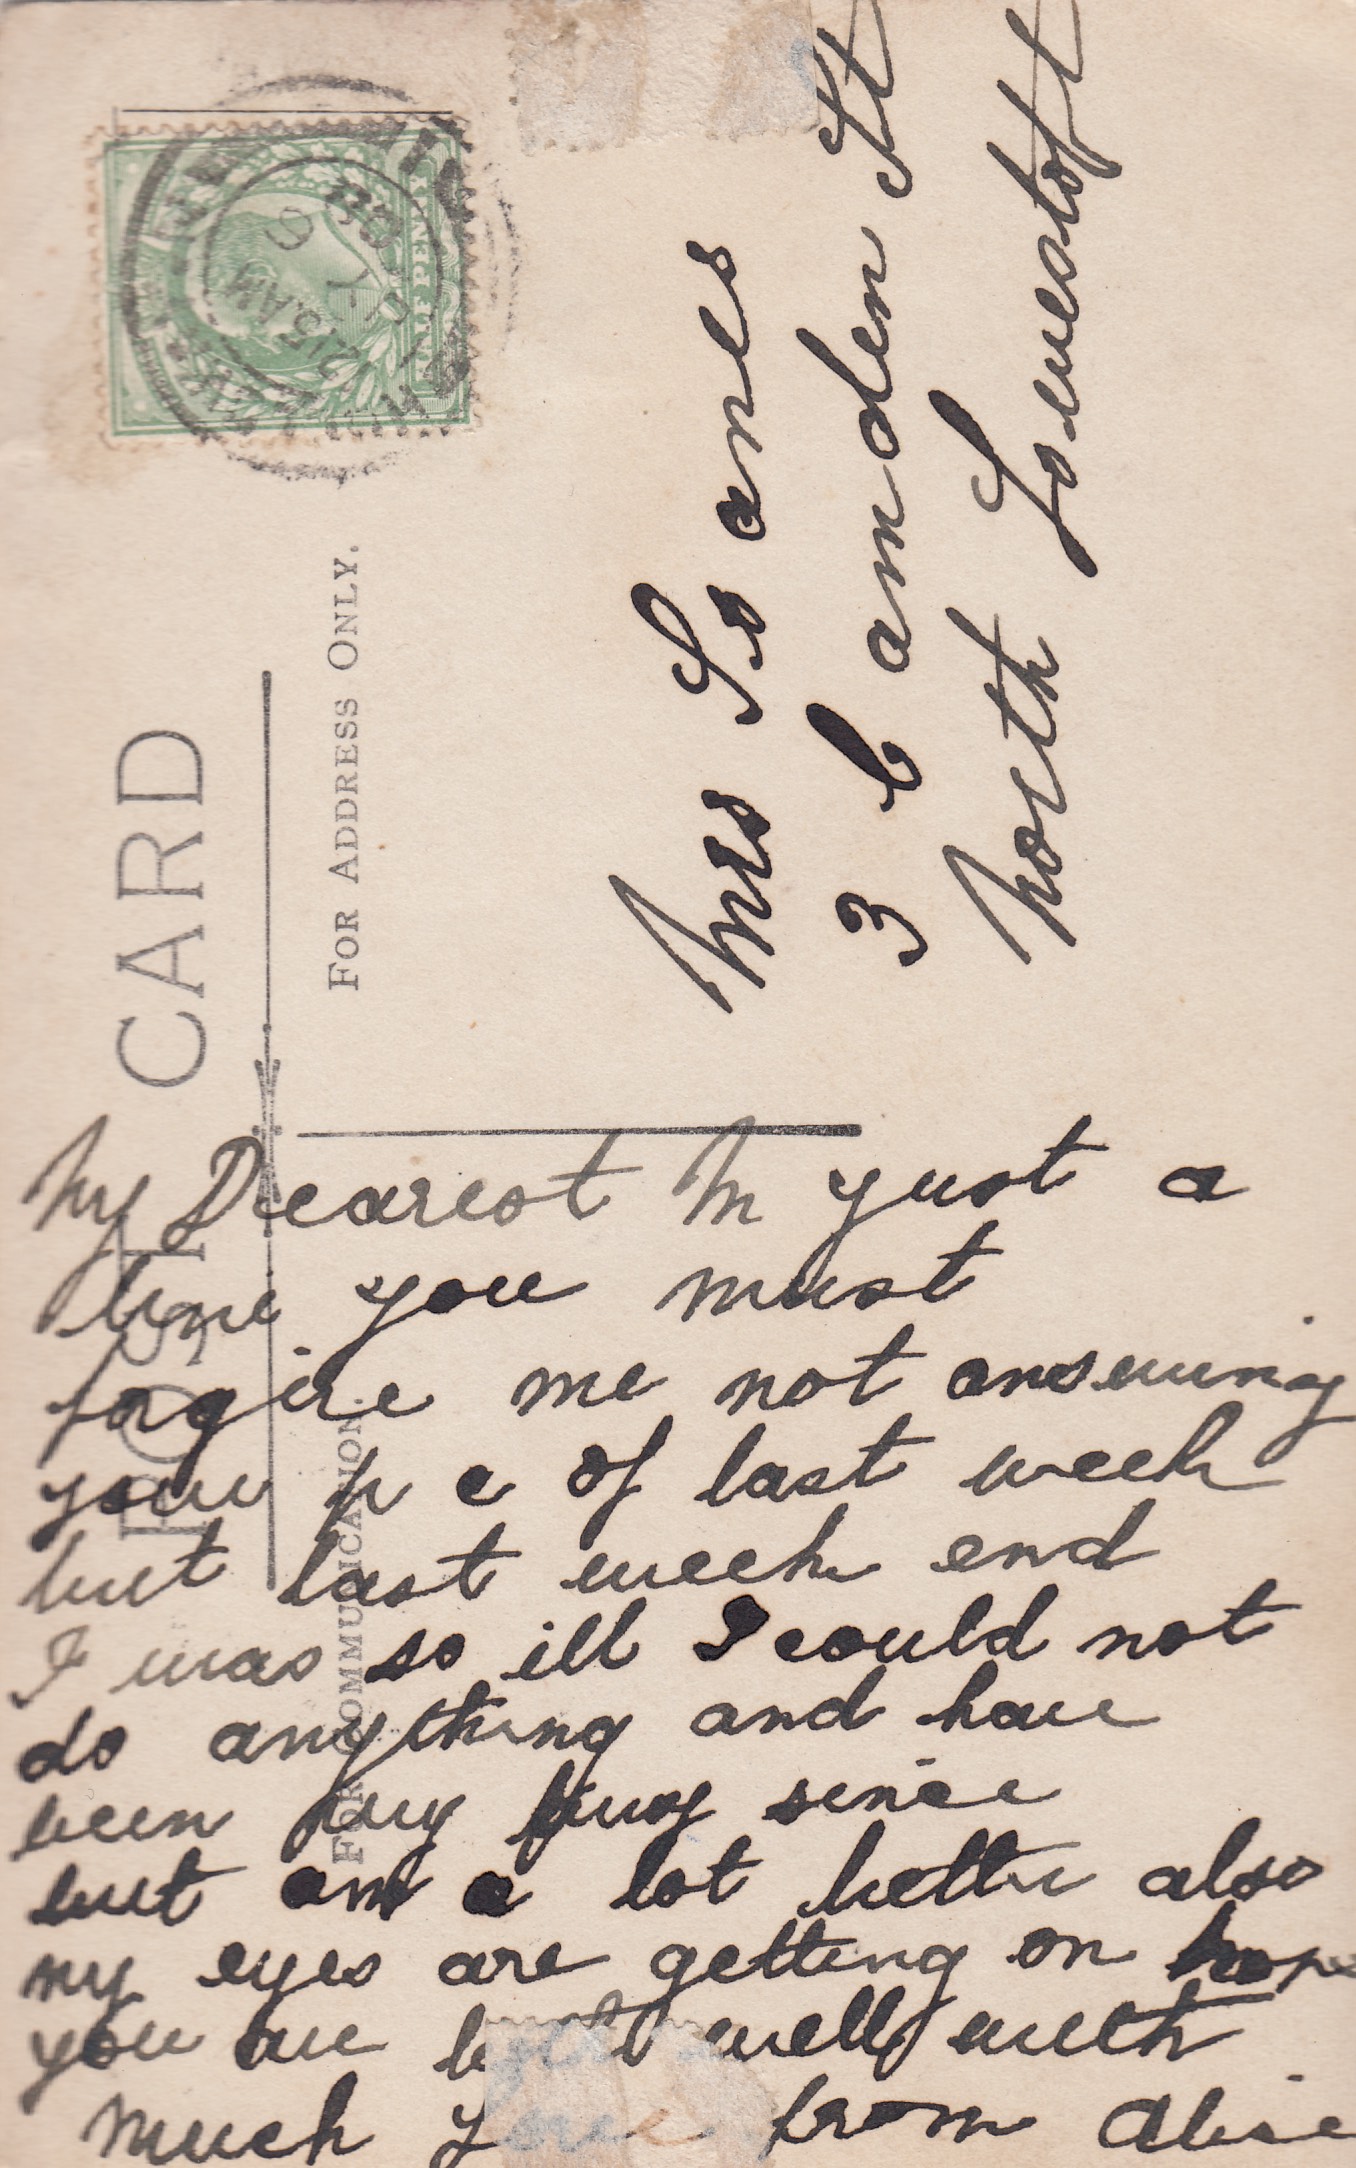 POST CARD
FOR COMMUNICATION.
FOR ADDRESS ONLY.
HALF PENNY
2 15 AM
JY
6
Mrs Soanes
3 Camden St
North Lowestoft
My Dearest M just a
line you must
forgive me not answering
your p c of last week
but last week end
I was so ill I could not
do anything and have
been very busy since
but am a lot better also
my eyes are getting on hope
you are well with
much from Alice